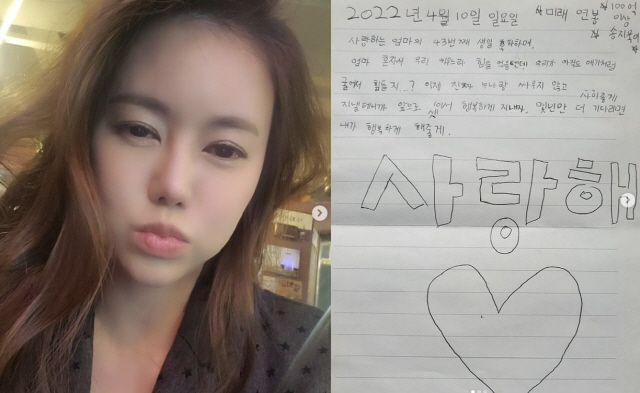 2022년 4월 10일 일요일 ☆미래 연봉 100억
이상
☆송지욱
사랑하는 엄마의 43번째 생일 축하하며.
엄마 혼자서 우리 키우느라 힘들 었을텐데 우리가
힘들 지..? 이제 진짜 누나랑 싸우지 않고
사이좋게
지낼테니까 앞으로 셋이서 행복하게 지내자. 몇년만 더 기다려면
내가 행복하게 해줄게.
사랑해